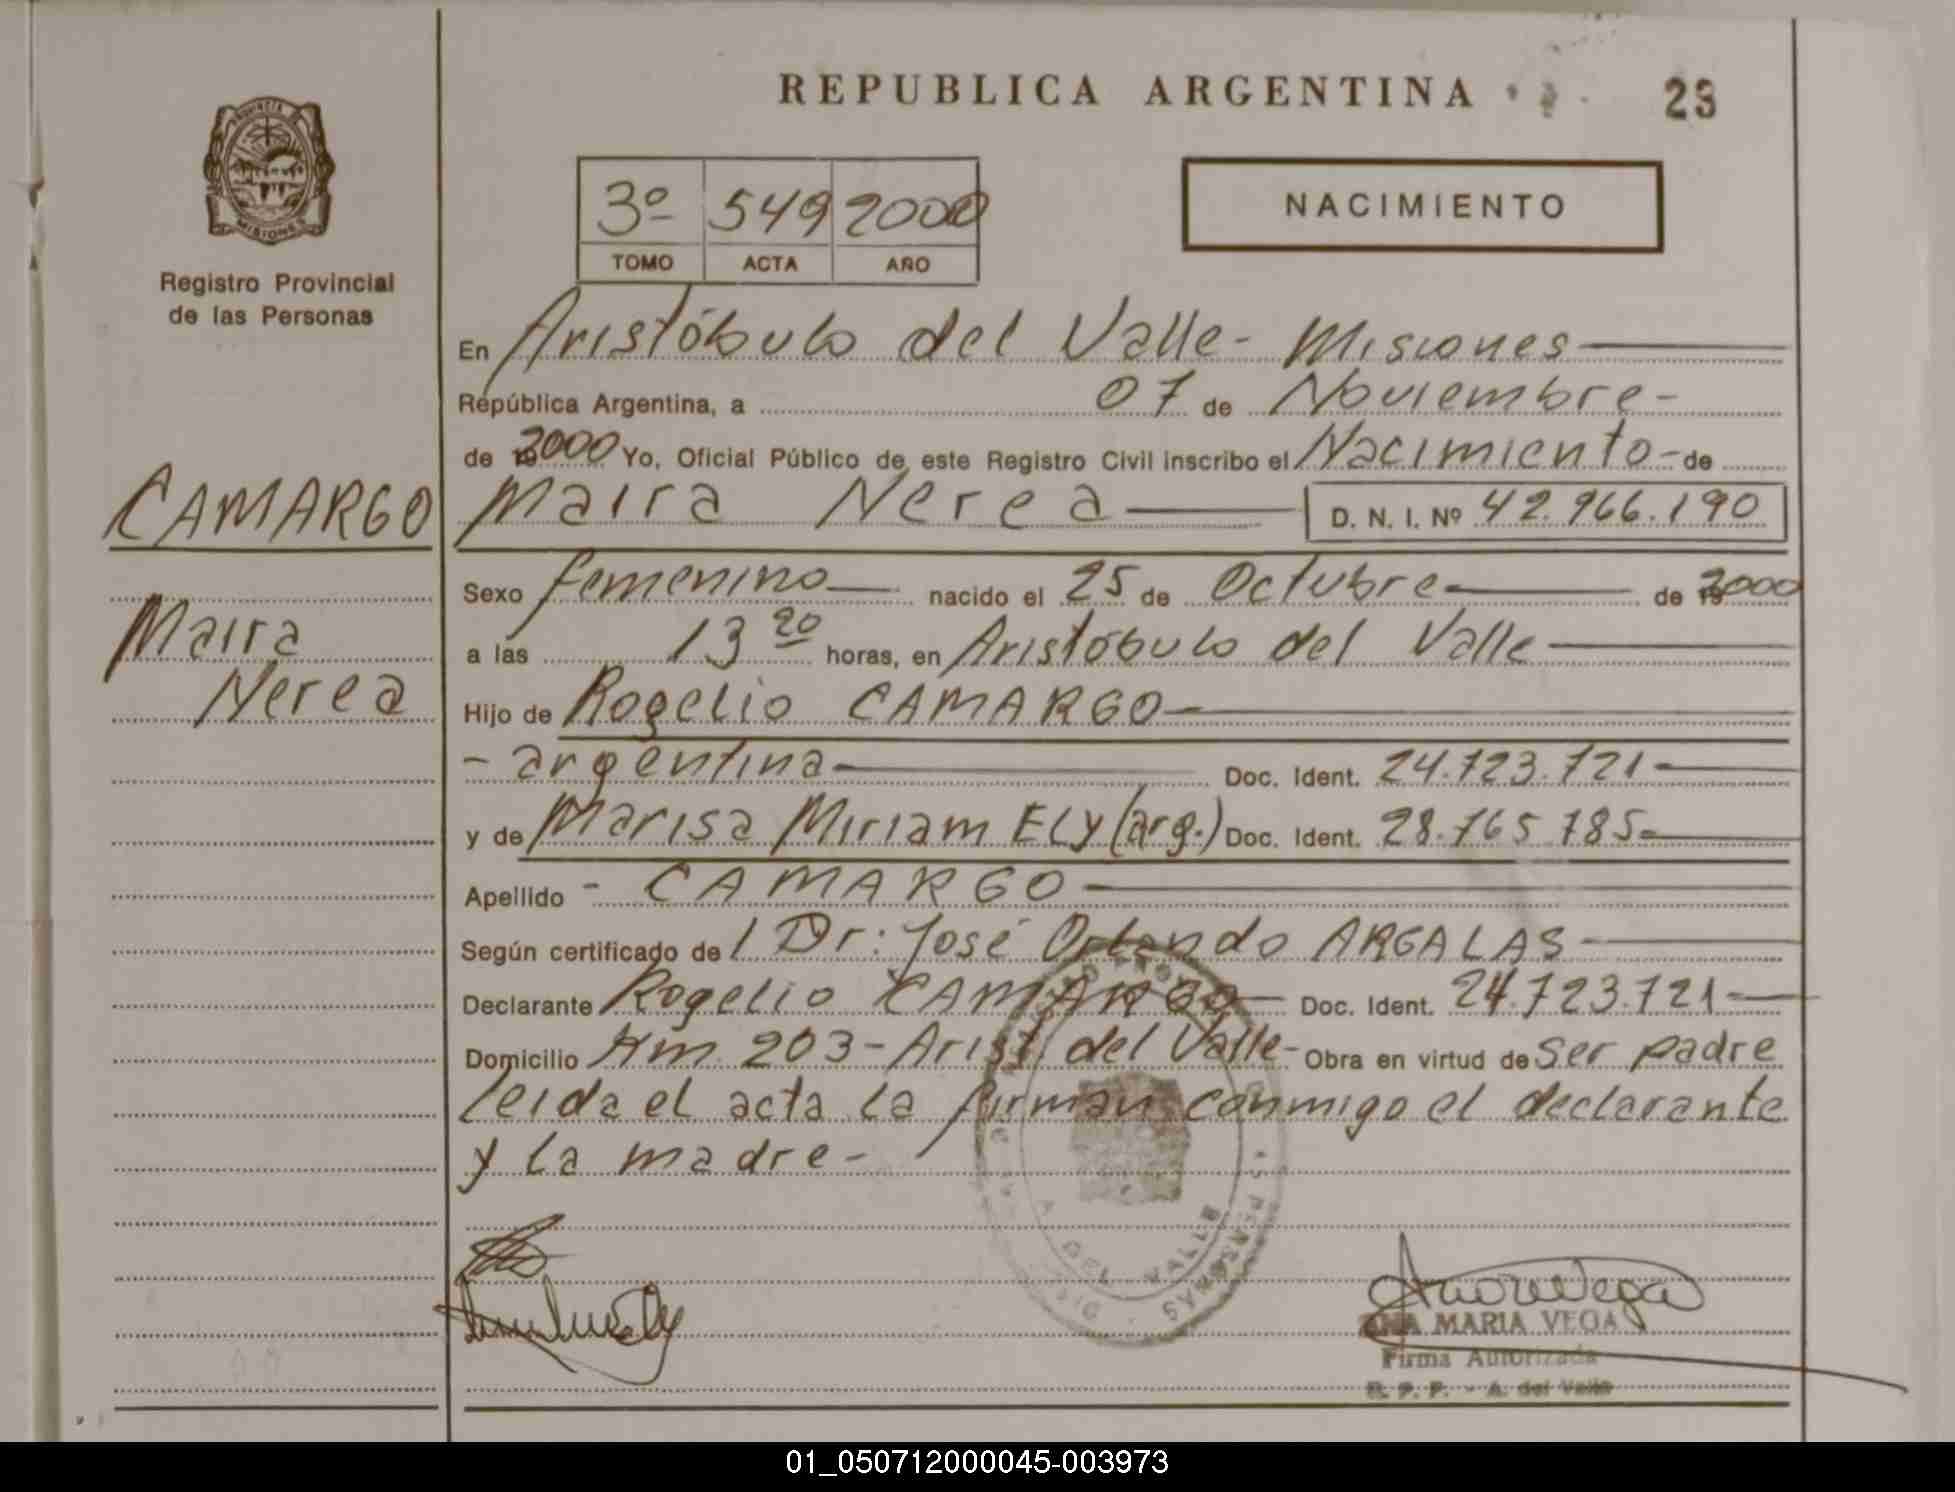 REPUBLICA ARGENTINA
23
PROVINCIA DE
MISIONES
Registro Provincial
de las Personas
3º 549 2000
TOMO ACTA AÑO
NACIMIENTO
En Aristóbulo del Valle- Misiones
República Argentina, a 07 de Noviembre-
de 2000 Yo, Oficial Público de este Registro Civil inscribo el Nacimiento- de
CAMARGO
Maira Nerea D. N. I. Nº 42.966.190
Sexo femenino nacido el 25 de Octubre de 2000
Maira
Nerea
a las 13 20 horas, en Aristóbulo del Valle
Hijo de Rogelio CAMARGO
- argentina Doc. Ident. 24.723.721
y de Marisa Miriam ELY (arg.) Doc. Ident. 28.765.785
Apellido - CAMARGO
Según certificado de l Dr: José Orlando ARGALAS
Declarante Rogelio CAMARGO Doc. Ident. 24.723.721
Domicilio Km 203- Arist. del Valle- Obra en virtud de ser padre
leida el acta la firman conmigo el declarante
y la madre-
A. DEL VALLE
ANA MARIA VEGA
Firma Autorizada
R. P. P. - A. del Valle
01_050712000045-003973